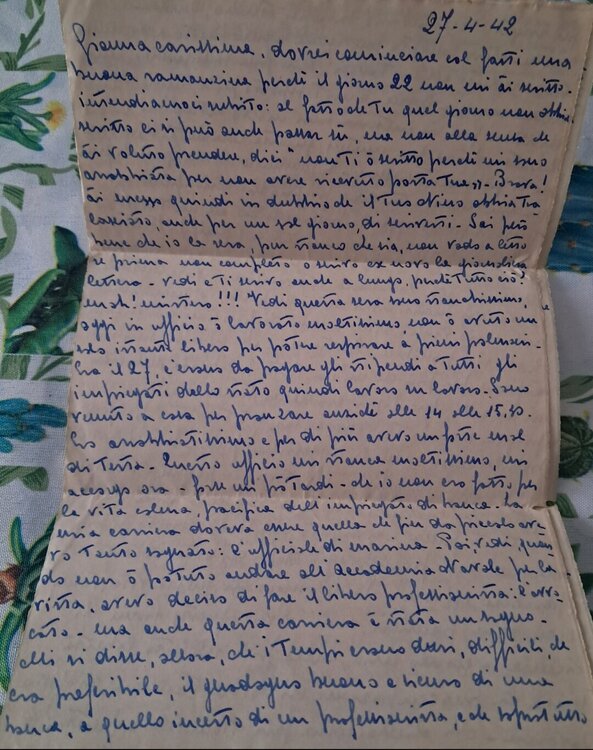 27-4-42
Gianna carissima, dovrei cominciare col farti una
buona ramanzina perchè il giorno 22 non mi ài scritto.
intendiamoci subito: al fatto che Tu quel giorno non abbia
scritto ci si può anche passar su, ma non alla scusa che
ài voluto prendere, dici "non Ti ò scritto perchè mi sono
arrabbiata per non avere ricevuto posta Tua". - Brava!
ài messo quindi in dubbio che il Tuo Nino abbia Tra
lasciato, anche per un sol giorno, di scriverTi. - Sai però
bene che io la sera, pur stanco che sia, non vado a letto
se prima non completo o scrivo ex novo la giornaliera
lettera. - Vedi e Ti scrivo anche a lungo, perchè Tutto ciò?
mah! mistero!!! Vedi questa sera sono stanchissimo,
oggi in ufficio ò lavorato moltissimo, non ò avuto un
solo istante libero per potere respirare a pieni polmoni. -
Era il 27, c'erano da pagare gli stipendi a Tutti gli
impiegati dello stato quindi lavoro su lavoro. - Sono
venuto a casa per pranzare anzichè alle 14 alle 15,30.
Ero arrabbiatissimo e per di più avevo un forte mal
di Testa. - Questo ufficio mi stanca moltissimo, mi
accorgo ora - forse un pò tardi - che io non ero fatto per
la vita calma, pacifica dell'impiegato di banca. - La
mia carriera doveva essere quella che fin da piccolo ave
vo Tanto sognato: l'ufficiale di marina. - Poi vedi, quan
do non ò potuto andare all'accademia Navale per la
vista, avevo deciso di fare il libero professionista: l'avvo
cato. - ma anche questa carriera è stata un sogno. -
Mi si disse, allora, che i Tempi erano duri, difficili, che
era preferibile, il guadagno buono e sicuro di una
banca, a quello incerto di un professionista, e che soprattutto